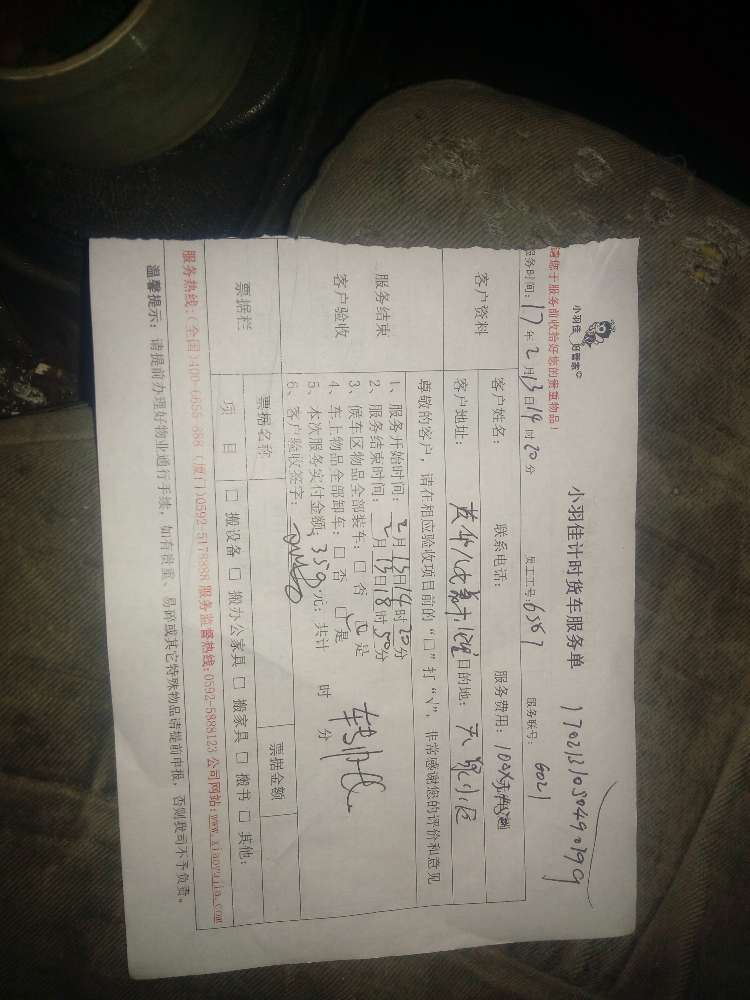 小羽佳 好管家
小羽佳计时货车服务单 1702131050490199
请您于服务前收拾好您的贵重物品!
服务时间:17年2月13日14时20分 员工工号:6567 服务联号:6021
客户资料
客户姓名: 联系电话: 服务费用:100
客户地址: 目的地:
尊敬的客户,请在相应验收项目前的“口”打“√”,非常感谢您的评价和意见
服务结束
客户验收
1、服务开始时间:2月13日14时20分
2、服务结束时间:2月13日18时50分
3、候车区物品全部装车:□ 否 ☑ 是
4、车上物品全部卸车:□ 否 ☑ 是
5、本次服务实付金额:359元;共计 时 分
6、客户验收签字:
票据栏
票据名称 票据金额
项 目 □ 搬设备 □ 搬办公家具 □ 搬家具 □ 搬书 □ 其他:
服务热线:(全国)400-6656-888 (厦门)0592-5178888 服务监督热线:0592-5888123 公司网站:www.xiaoyujia.com
温馨提示:请提前办理好物业通行手续,如有贵重、易碎或其它特殊物品请提前申报,否则我司不予负责。